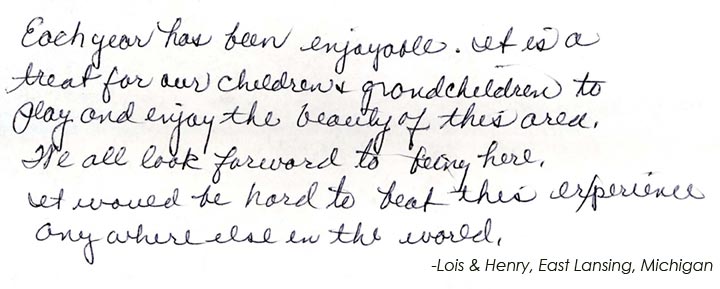 Each year has been enjoyable. It is a
treat for our children & grandchildren to
play and enjoy the beauty of this area.
We all look forward to being here.
It would be hard to beat this experience
anywhere else in the world.
-Lois & Henry, East Lansing, Michigan